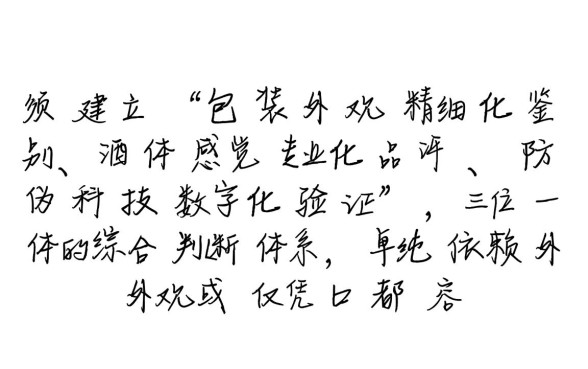 须建立“包装外观精细化鉴
别、酒体感觉专业化品评、防
伪科技数字化验证”，三位一
体的综合判断体系，单纯依赖外
外观或仅凭口都容